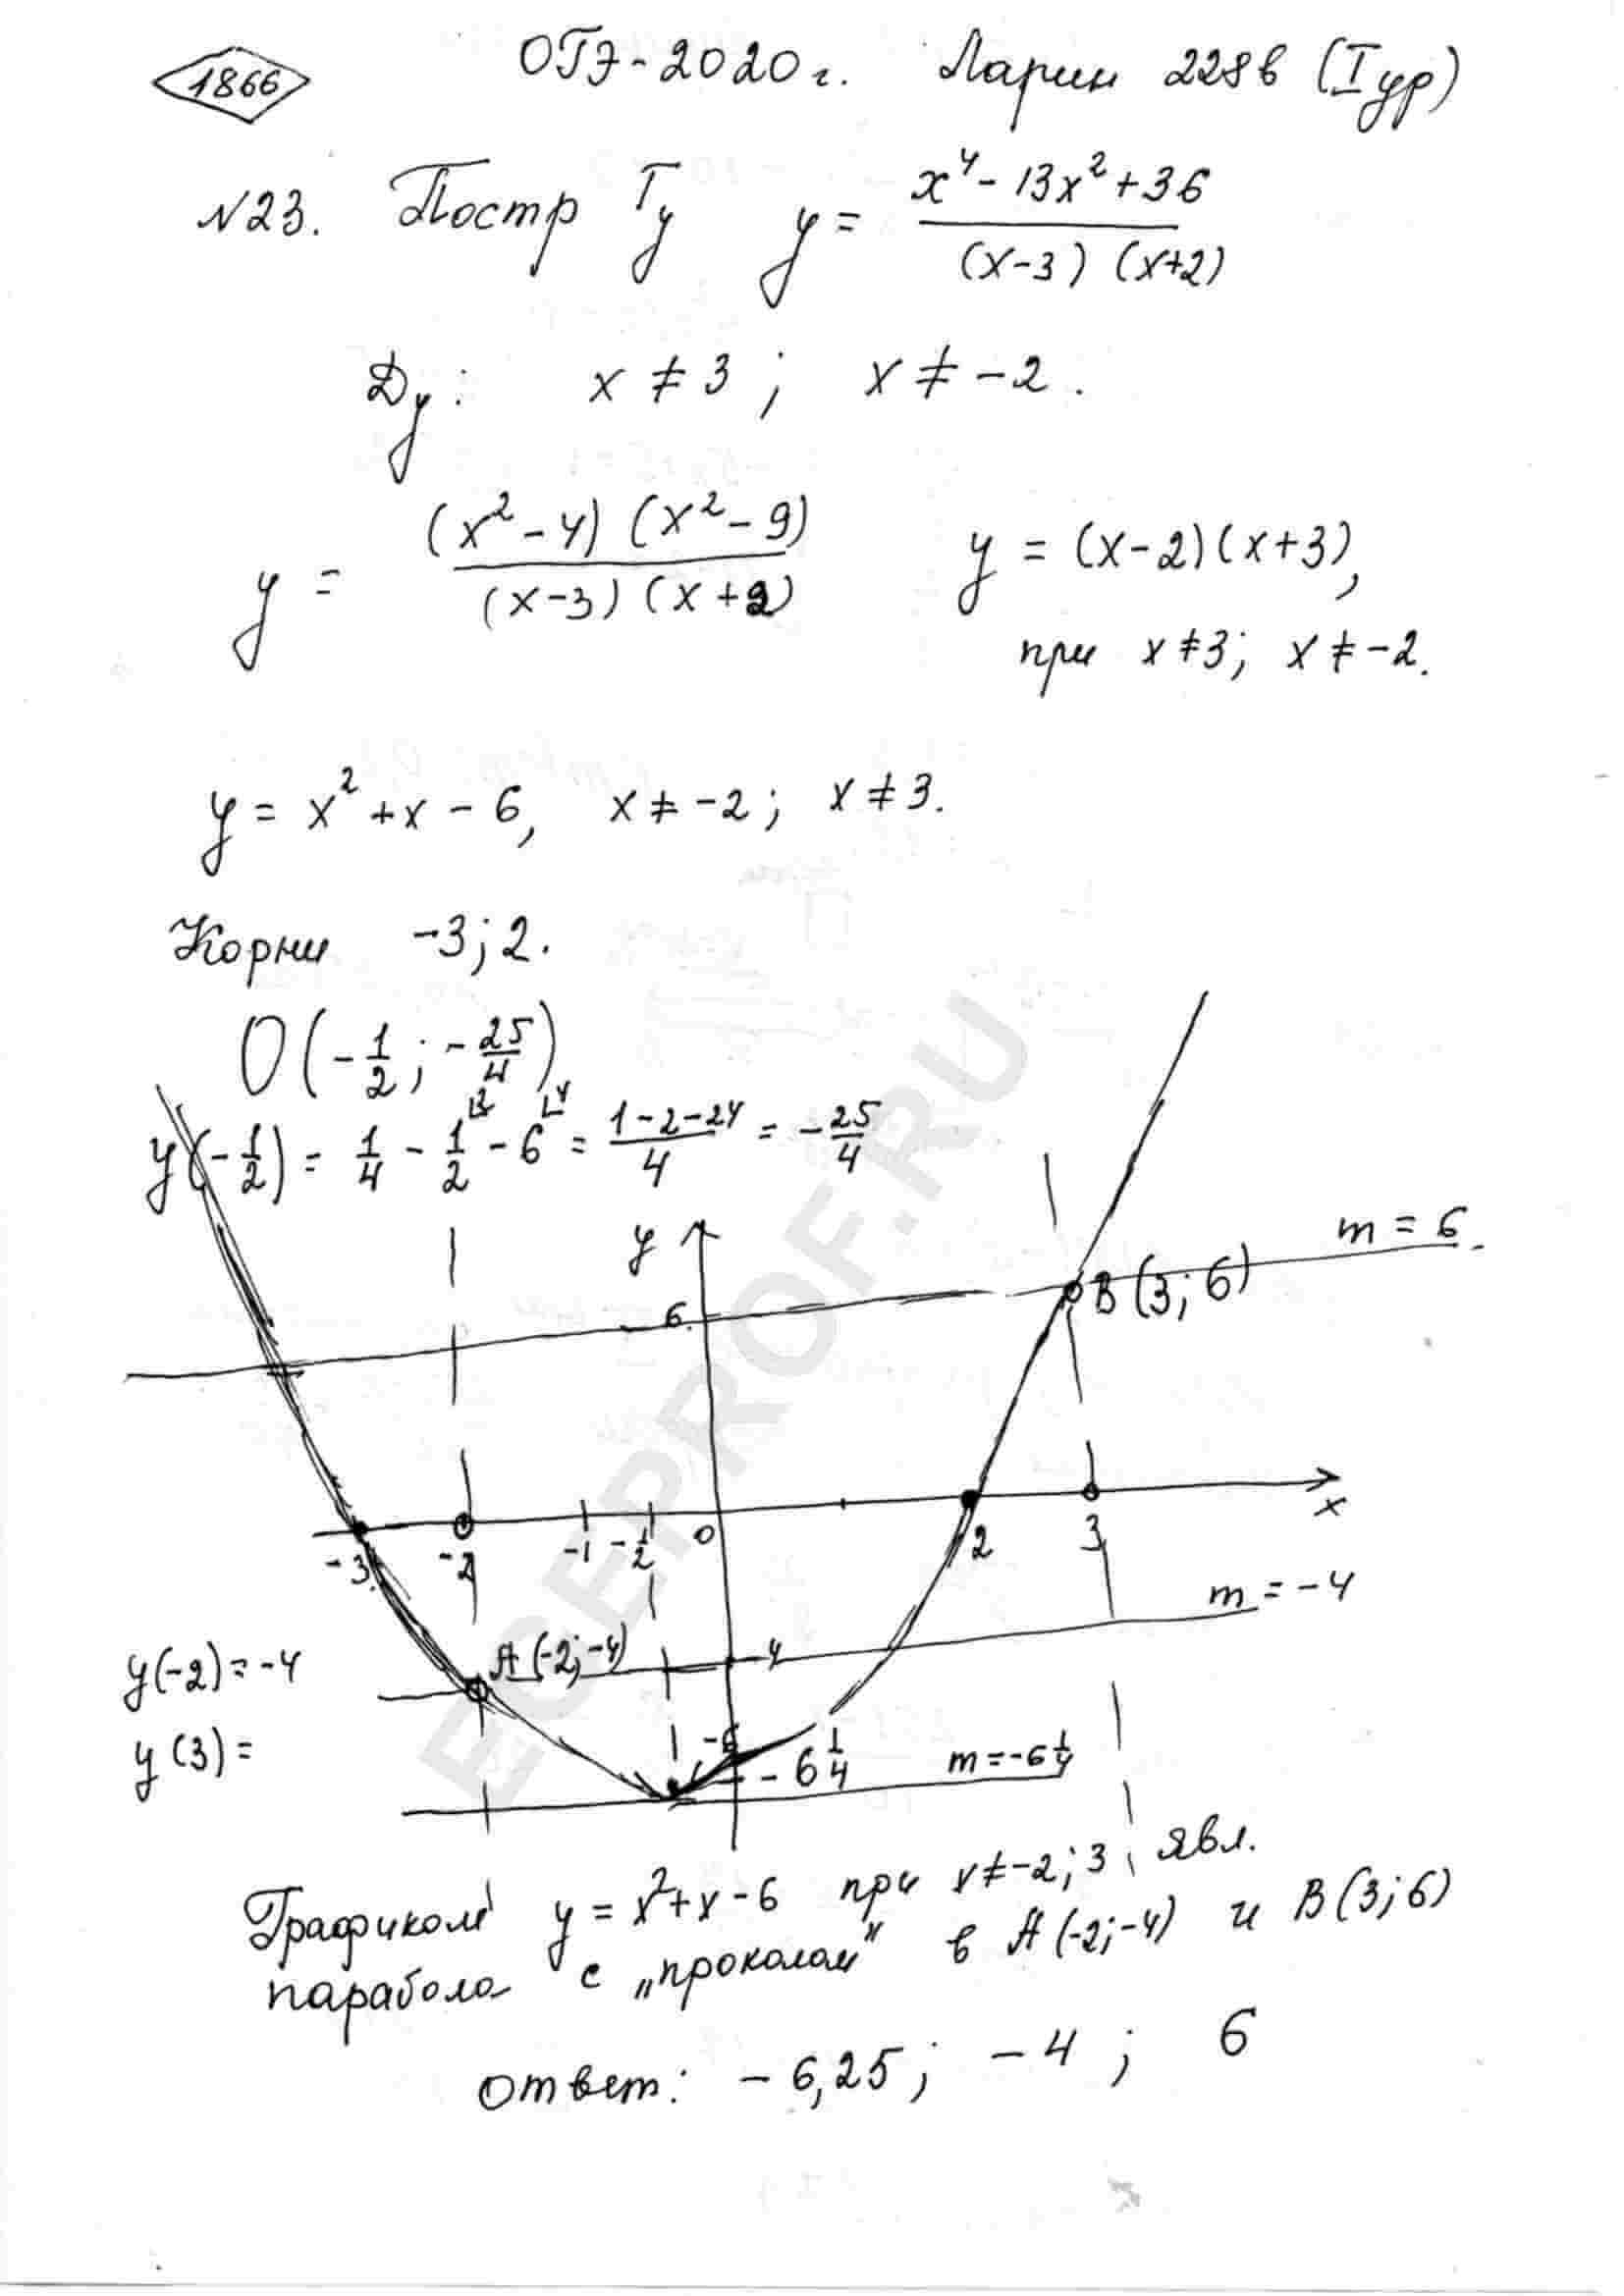 1866 ОГЭ-2020г. Ларин 228в (I ур)
N23. Постр Гу y = \frac{x^4 - 13x^2 + 36}{(x-3)(x+2)}
Dy: x ≠ 3; x ≠ -2.
y = \frac{(x^2-4)(x^2-9)}{(x-3)(x+2)} y = (x-2)(x+3),
при x ≠ 3; x ≠ -2.
y = x^2 + x - 6, x ≠ -2; x ≠ 3.
Корни -3; 2.
O(-\frac{1}{2}; -\frac{25}{4})
y(-\frac{1}{2}) = \frac{1}{4} - \frac{1}{2}^{∟2} - 6^{∟4} = \frac{1-2-24}{4} = -\frac{25}{4}
y m = 6.
6 B(3; 6)
-3 -2 -1 -\frac{1}{2} 0 2 3 x
m = -4
y(-2) = -4 A(-2; -4) -4
y(3) = -6 -6\frac{1}{4} m = -6\frac{1}{4}
Графиком y = x^2 + x - 6 при x ≠ -2; 3 явл.
парабола с „проколом" в A(-2; -4) и B(3; 6)
Ответ: -6,25; -4; 6
EGEPROF.RU